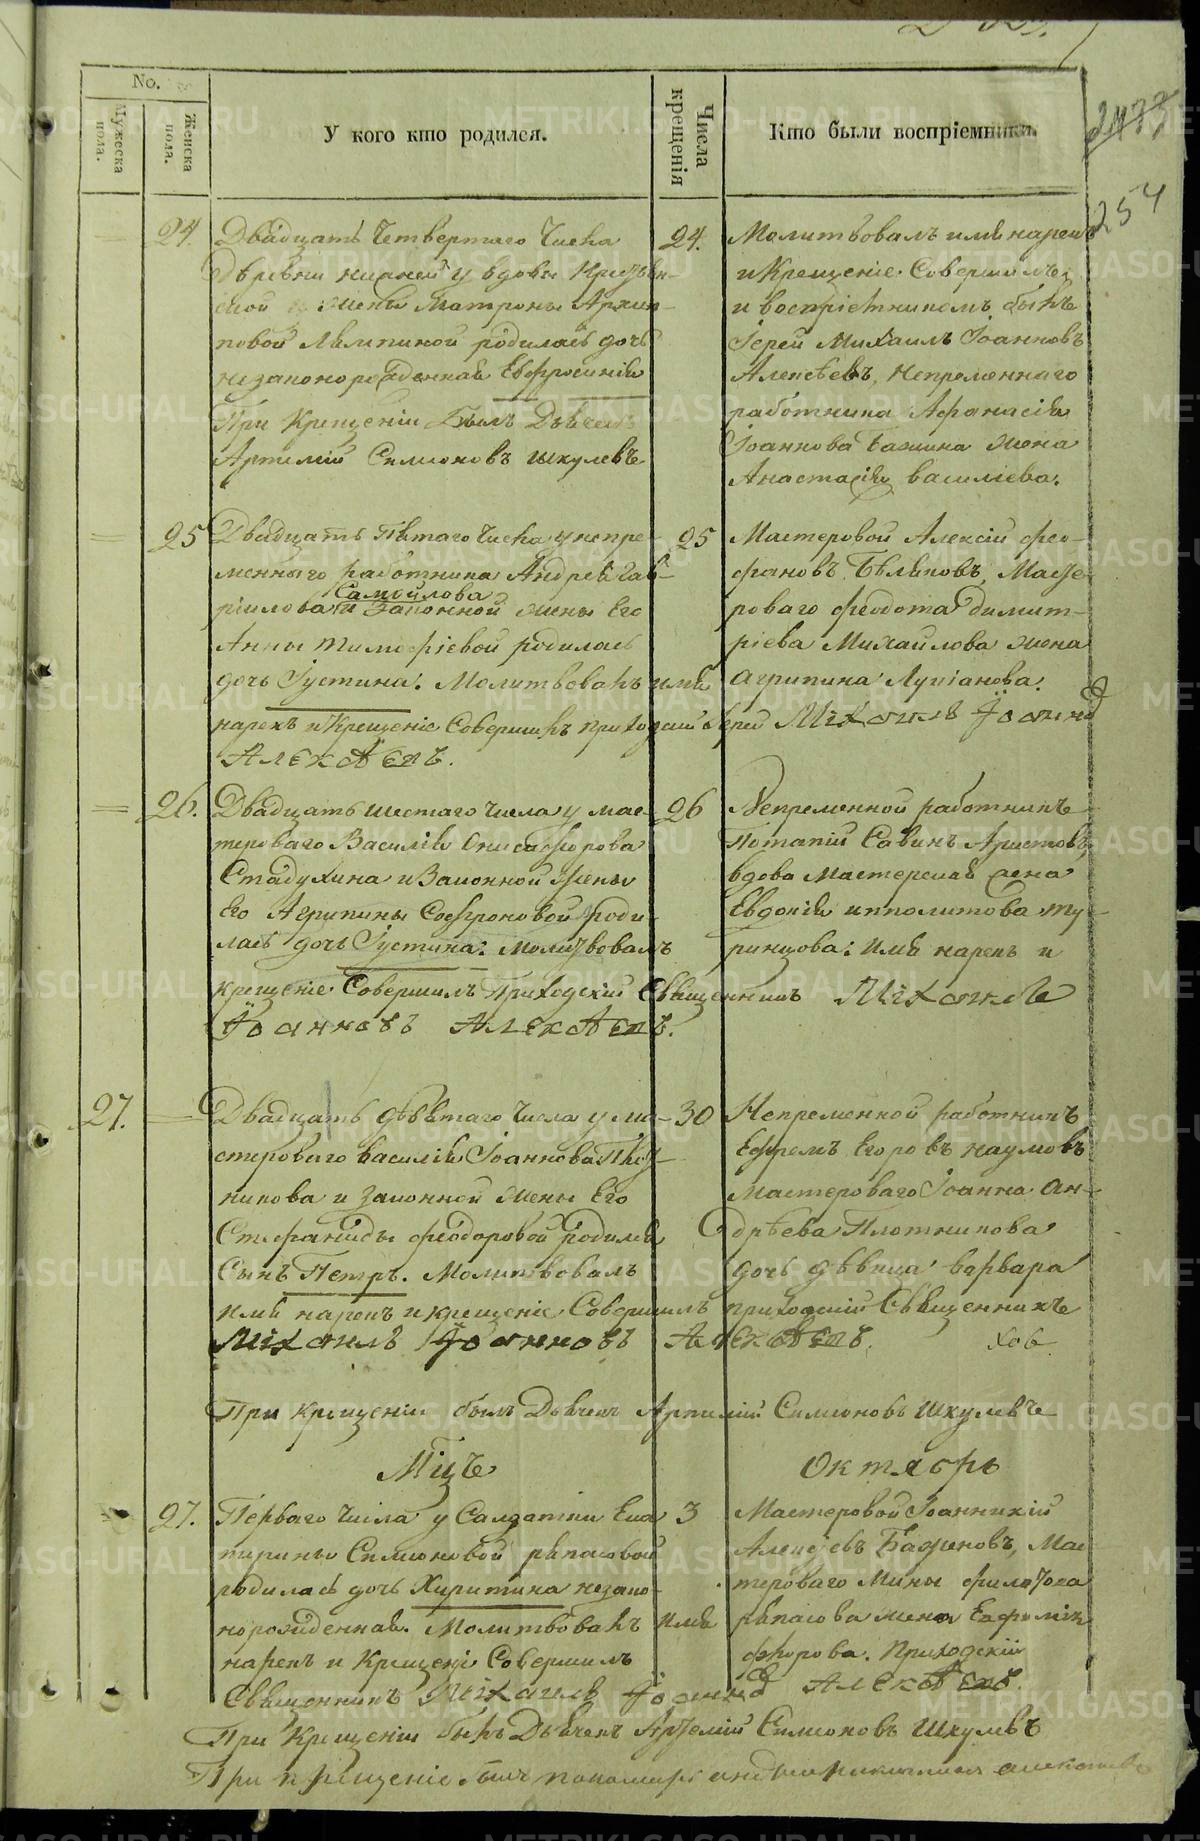 2473
254
No.
Мужеска пола.
Женска пола.
У кого кто родился.
Числа крещенія
Кто были воспріемники.
24.
Двадцать Четвертаго Числа
Деревни нижней у вдовы
жены Матроны Архип-
повой родилась дочь
незаконорожденная Евфросинія
При Крещеніи Былъ Дьячекъ
Артемій Симеоновъ Шкулевъ
24.
Молитвовалъ имя нарекъ
и Крещеніе Совершилъ
и воспріемникомъ былъ
Іерей Михаилъ Іоанновъ
Алексѣевъ, Непременнаго
работника Афанасія
Іоаннова Бажина жена
Анастасія василіева.
25
Двадцать Пятаго Числа у непре-
меннаго работника Андрея Гав-
Самойлова
ріилова и Законной жены Его
Анны Тимофіевой родилась
дочь Іустина. Молитвовалъ имя
нарекъ и Крещеніе Совершилъ приходскій Іерей Міхаилъ Іоаннов
Алексѣевъ.
25
Мастеровой Алексій фео-
фановъ Бѣляковъ, Масте-
роваго феодота димит-
ріева Михайлова жена
Агрипина Лукіанова.
26.
Двадцать шестаго числа у мас-
тероваго Василія Онисифорова
Стадухина и Законной жены
Его Агрипины Софроновой роди-
лась дочь Іустина: молитвовалъ
крещеніе Совершилъ Приходскій Священникъ Міхаилъ
Іоанновъ Алексѣевъ.
26
Непременной работникъ
Потапій Савинъ Аристовъ,
вдова Мастерская жена
Евдокія ипполитова Ту-
ринцова: имя нарекъ и
27.
Двадцать девятаго Числа у ма-
стероваго василія Іоаннова Плот-
никова и Законной жены Его
Стефаниды феодоровой родился
Сынъ Петръ. Молитвовалъ
имя нарекъ и крещеніе Совершилъ приходскій Священникъ
Міхаилъ Іоанновъ Алексѣевъ.
30
Непременной работникъ
Ефремъ Егоровъ наумовъ
мастероваго Іоанна Ан-
дрѣева Плотникова
дочь дѣвица варвара
При крещеніи былъ Дьячекъ Артемій Симеоновъ Шкулевъ
Мцъ
Октябрь
27.
Перваго числа у Салдатки Ека
терины Симеоновой репаловой
родилась дочь Харитина незако-
норожденная. Молитвовалъ имя
нарекъ и Крещеніе Совершилъ
Священникъ Міхаилъ Іоаннов Алексѣевъ.
3
Мастеровой Іоанникій
Алексѣевъ Баженовъ, Мас
тероваго Мины
жена Евфимія
Приходскій
При Крещеніи былъ Дьячекъ Артемій Симеоновъ Шкулевъ
При крещеніе былъ пономарь